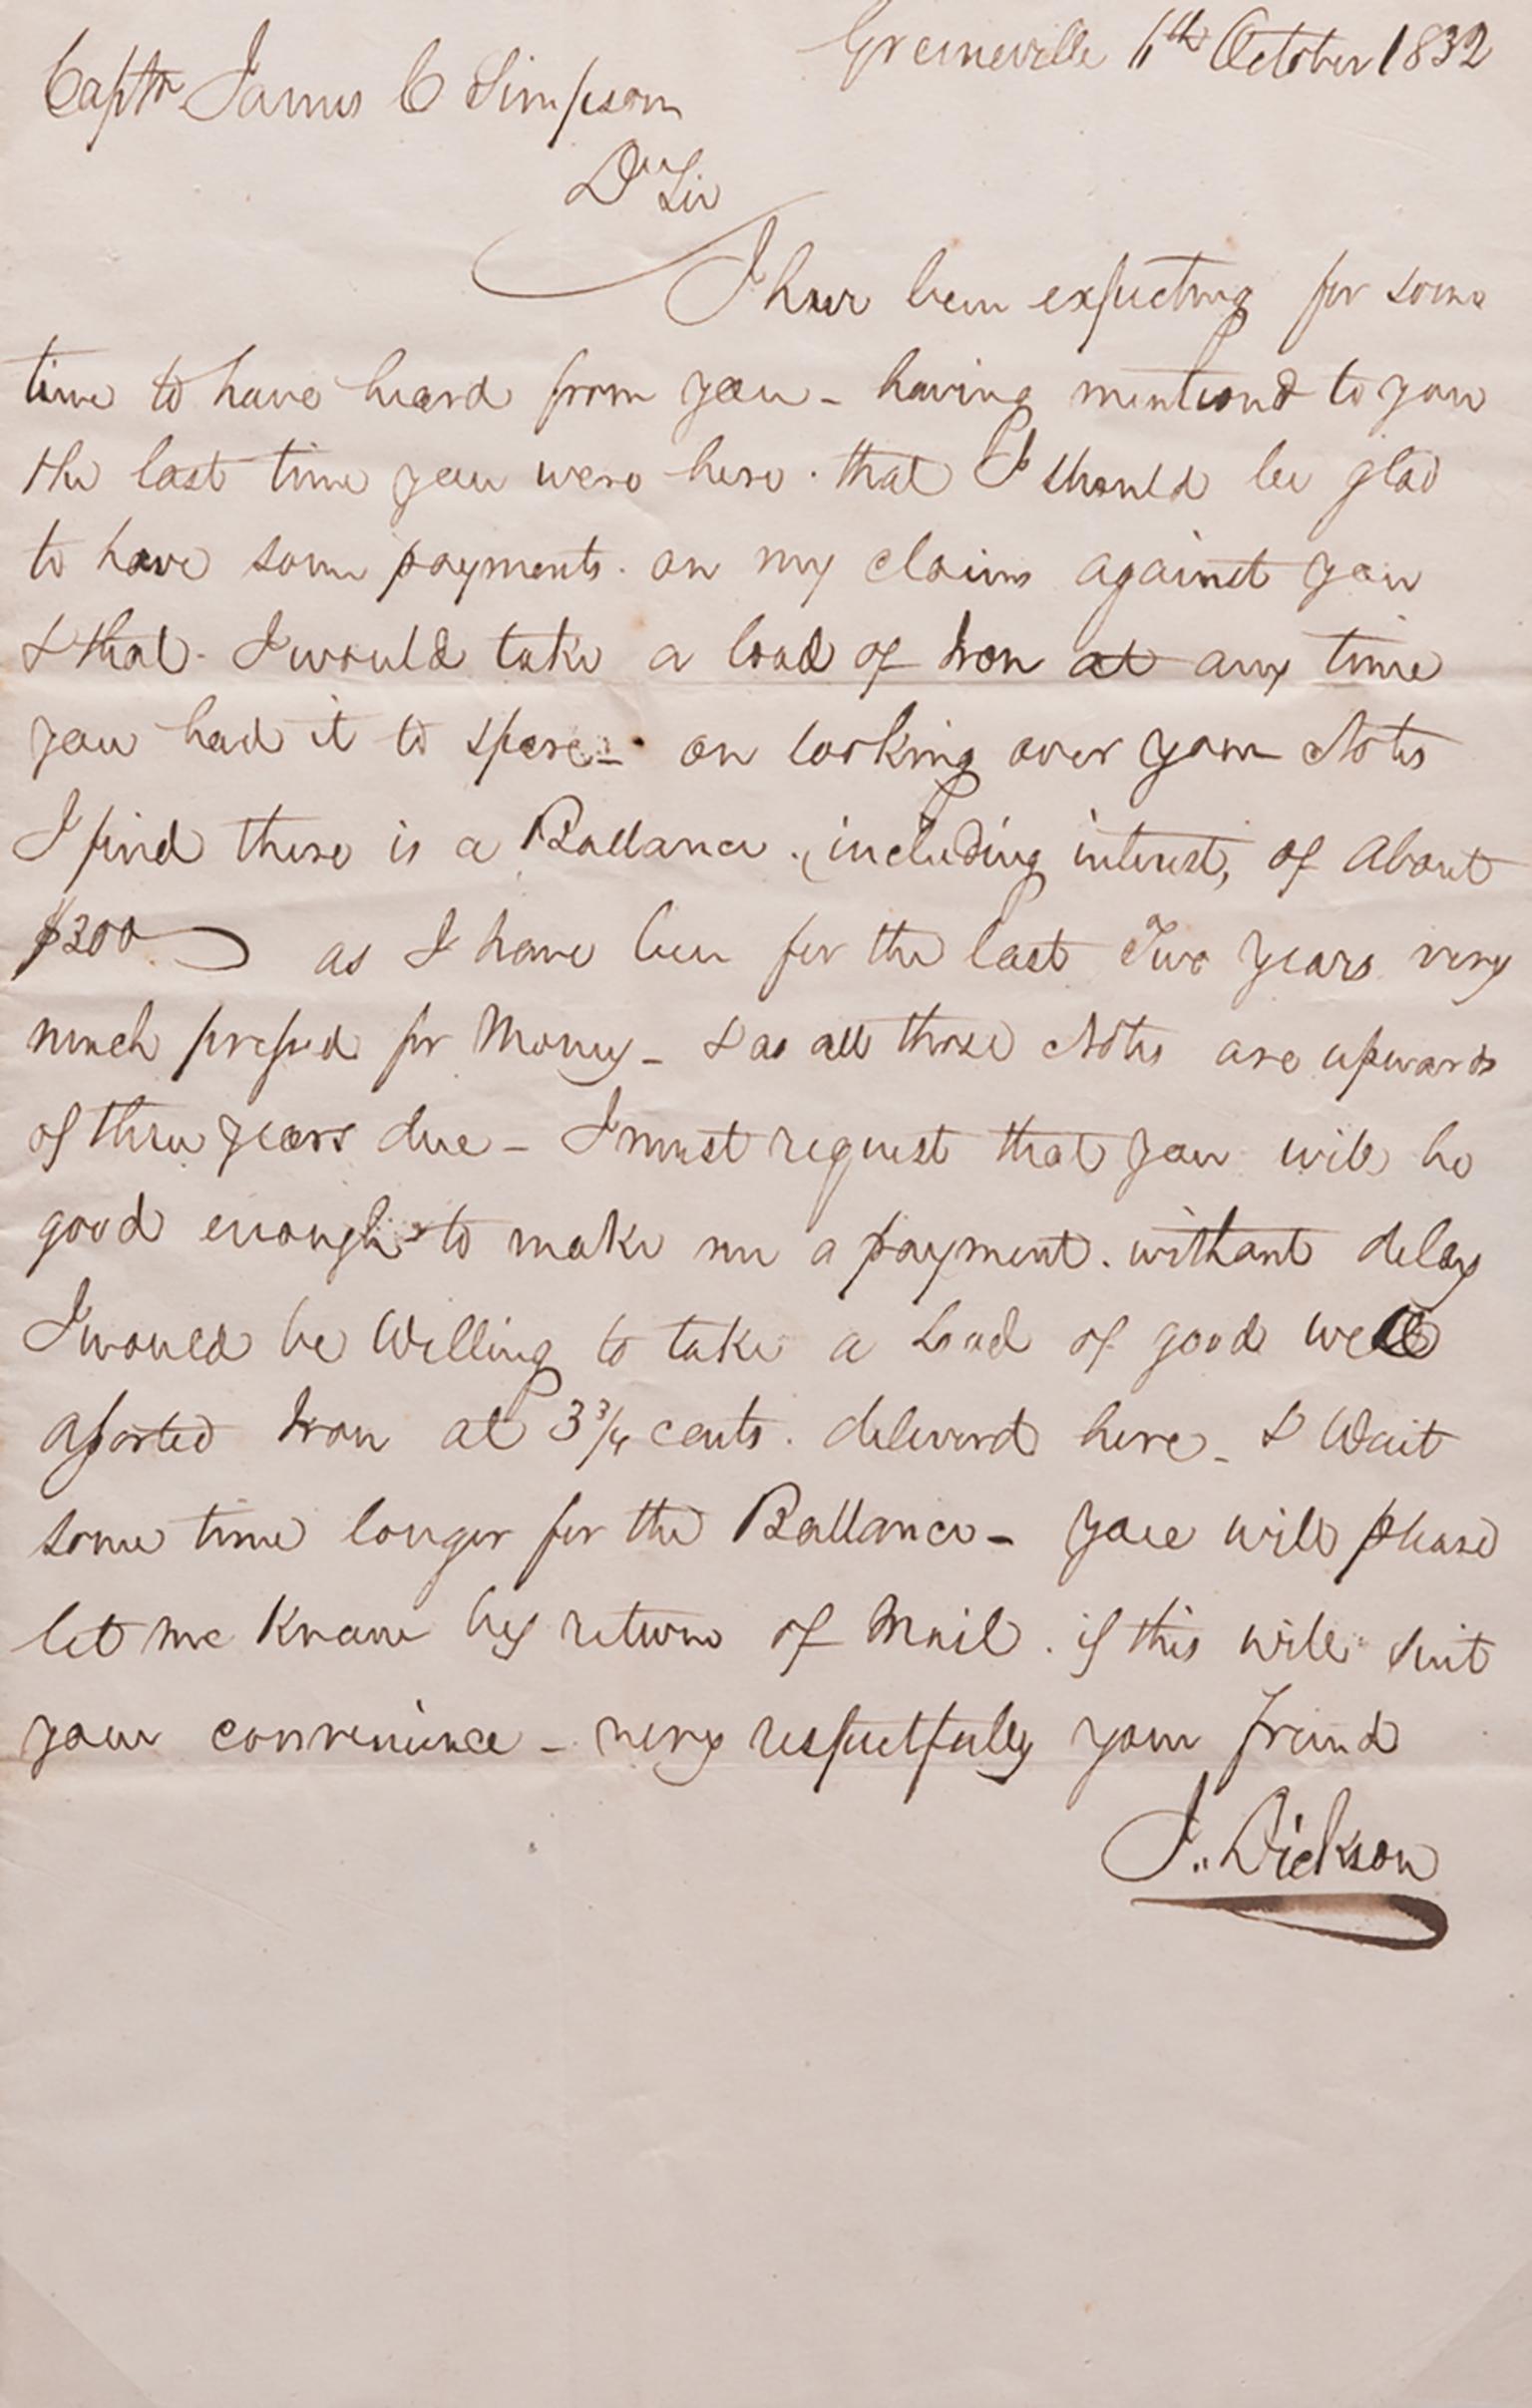 Greeneville 11th October 1832
Captn James C Simpson
Dr Sir
I have been expecting for some
time to have heard from you - having mentiond to you
the last time you were here. that I should be glad
to have some payments. on my claims against you
& that. I would take a load of Iron at any time
you had it to spare - on looking over your Notes
I find there is a Ballance. (including interest, of About
$300 as I have been for the last Two years very
much pressed for Money - & as all those Notes are upwards
of three years due - I must request that you will be
good enough to make me a payment. without delay
I would be Willing to take a Load of good well
assorted Iron at 3 3/4 cents. deliverd here - & Wait
some time longer for the Ballance - you will please
let me know by return of Mail. if this will suit
your convenience - very respectfully your friend
J. Dickson